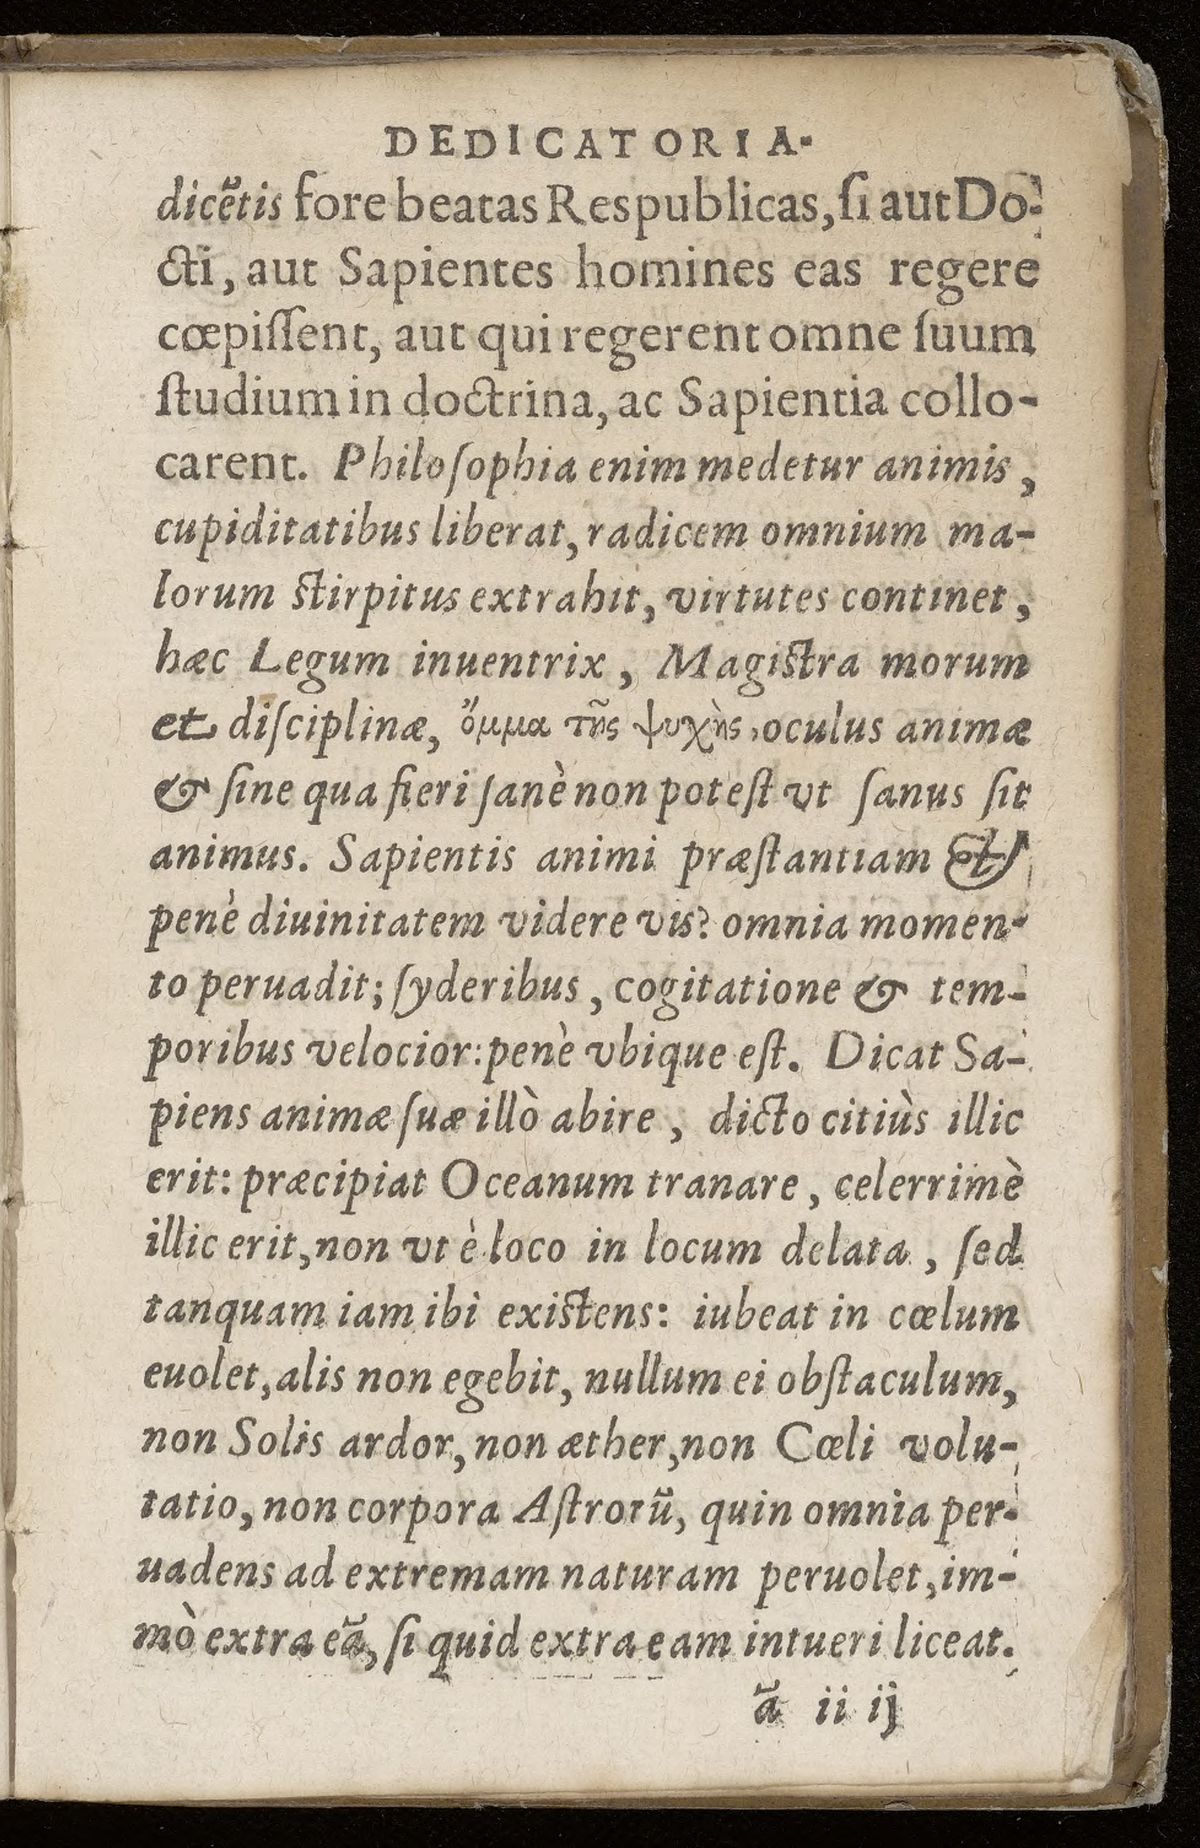 DEDICATORIA.
dicẽtis fore beatas Respublicas, ſi aut Do-
cti, aut Sapientes homines eas regere
cœpiſſent, aut qui regerent omne ſuum
ſtudium in doctrina, ac Sapientia collo-
carent. Philoſophia enim medetur animis,
cupiditatibus liberat, radicem omnium ma-
lorum ſtirpitus extrahit, virtutes continet,
hæc Legum inuentrix, Magiſtra morum
et diſciplinæ, ὄμμα τῆς ψυχὴς, oculus animæ
& ſine qua fieri ſanè non poteſt vt ſanus ſit
animus. Sapientis animi præſtantiam &
penè diuinitatem videre vis? omnia momen-
to peruadit; ſyderibus, cogitatione & tem-
poribus velocior: penè vbique eſt. Dicat Sa-
piens animæ ſuæ illò abire, dicto citiùs illic
erit: præcipiat Oceanum tranare, celerrimè
illic erit, non vt è loco in locum delata, ſed
tanquam iam ibi exiſtens: iubeat in cœlum
euolet, alis non egebit, nullum ei obſtaculum,
non Solis ardor, non æther, non Cœli volu-
tatio, non corpora Aſtrorũ, quin omnia per-
uadens ad extremam naturam peruolet, im-
mò extra eã, ſi quid extra eam intueri liceat.
ã ii ij